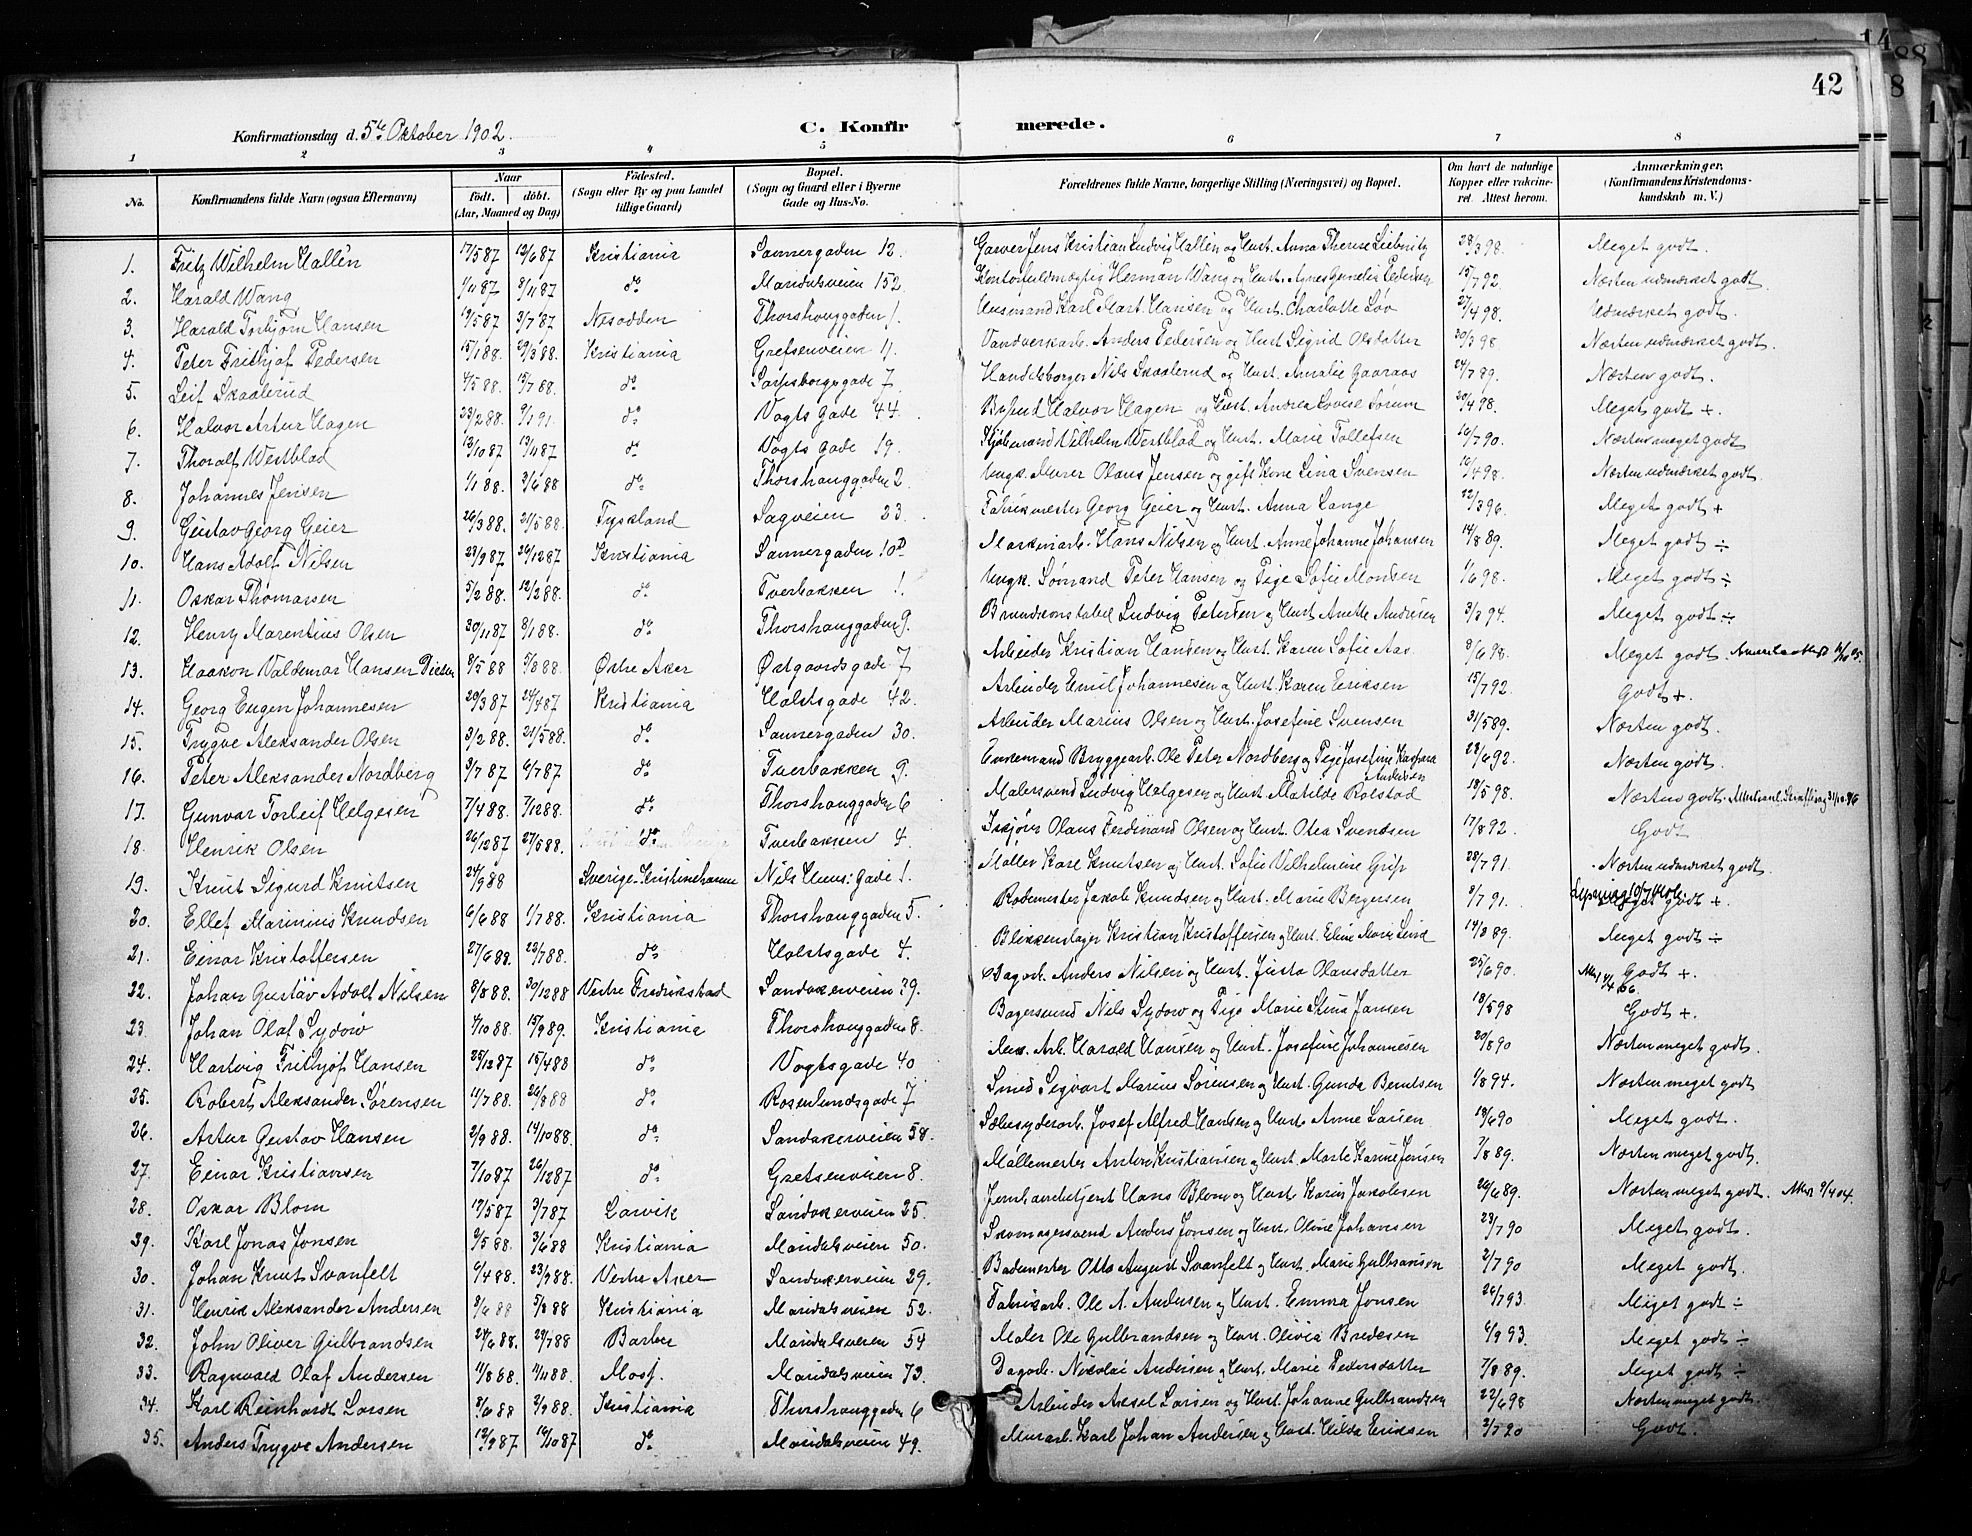 42
Konfirmationsdag d. 5te Oktober 1902.
C. Konfirmerede.
1 2 3 4 5 6 7 8
No.
Konfirmandens fulde Navn (ogsaa Efternavn)
Naar
født. døbt.
(Aar, Maaned og Dag)
Fødested.
(Sogn eller By og paa Landet
tillige Gaard)
Bopæl.
(Sogn og Gaard eller i Byerne
Gade og Hus-No.
Forældrenes fulde Navne, borgerlige Stilling (Næringsvei) og Bopæl.
Om havt de naturlige
Kopper eller vakcine-
ret. Attest herom.
Anmærkninger.
(Konfirmandens Kristendoms-
kundskab m. V.)
1. Fritz Wilhelm Hallén 17/5 87 19/6 87 Kristiania Sannergaden 12. Garver Jens Kristian Ludvig Hallén og Hust. Anna Therese Liebnitz 28/3 98. Meget godt.
2. Harald Wang 1/1 87 8/11 87 do Maridalsveien 152 Kontorfuldmægtig Herman Wang og Hust. Pedersen 15/7 92. Næsten udmærket godt.
3. Harald Torbjørn Hansen 19/5 87 3/7 87 Nesodden Thorshauggaden 1. Husmand Karl Mart. Hansen og Hust. Charlotte Løv 27/4 98. Udmærket godt.
4. Peter Frithjof Pedersen 15/1 88. 29/3 88. Kristiania Grefsenveien 11. Vandverksarb. Anders Pedersen og Hust. Sigrid Olsdatter 30/3 98. Næsten udmærket godt.
5. Leif Skaalerud 4/5 88. 15/7 88. do Sarpsborggade 7 Handelsborger Nils Skaalerud og Hust. Amalie Gaaraas 24/7 89. Næsten godt.
6. Halvor Artur Hagen 23/2 88. 9/1 91. do Vogts Gade 44. Bybud Halvor Hagen og Hust. Andrea Lovise Sørum 20/4 98. Meget godt +.
7. Thoralf Westblad 13/10 87 13/11 87 do Vogts Gade 19. Kjøbmand Vilhelm Westblad og Hust. Marie Tollefsen 16/7 90. Næsten meget godt
8. Johannes Jensen 1/1 88. 3/6 88 do Thorshauggaden 2 Ungk. Murer Olaus Jensen og gift Kone Lina Svensen 16/4 98. Næsten udmærket godt
9. Gustav Georg Geier 26/3 88. 21/5 88. Tyskland Sagveien 23. Fabrikmester Georg Geier og Hust. Anna Lange 22/3 96. Meget godt +
10. Hans Adolf Nilsen 23/9 87 26/12 87 Kristiania Sannergaden 10D Maskinarb. Hans Nilsen og Hust. Anne Johanne Johansen 14/8 89. Meget godt ÷
11. Oskar Thomassen 5/2 88 12/2 88. do Tverbakken 1. Ungk. Sømand Peter Hansen og Pige Sofie Monsen 1/6 98. Meget godt ÷
12. Henry Marentius Olsen 30/11 87 8/1 88. do Thorshauggaden 9. Brandkonstabel Ludvig Petersen og Hust. Anette Andersen 3/3 94. Meget godt ÷
13. Haakon Valdemar Hansen 8/5 88 5/8 88. Østre Aker Østgaardsgade 7 Arbeider Kristian Hansen og Hust. Karen Sofie Aas 8/6 98. Meget godt.
14. Georg Eugen Johannesen 29/3 87 24/4 87 Kristiania Holstsgade 42. Arbeider Emil Johannesen og Hust. Karen Eriksen 15/7 92. Godt +.
15. Trygve Aleksander Olsen 3/2 88. 21/5 88. do Sannergaden 30. Arbeider Marius Olsen og Hust. Josefine Svensen 31/5 89. Næsten godt.
16. Peter Aleksander Nordberg 3/7 87 6/7 87 do Tverbakken 9. Enkemand Bryggearb. Ole Peter Nordberg og Pige Josefine Kaspara Andersen 28/6 92. Næsten godt.
17. Gunvar Torleif Helgesen 7/4 88. 7/12 88. do Thorshauggaden 6 Malersvend Ludvig Helgesen og Hust. Matilde Rolstad 18/5 98. Næsten godt.
18. Henrik Olsen 26/12 87 27/5 88. do Tverbakken 4. Olaus Ferdinand Olsen og Hust. Otea Svendsen 17/8 92. Godt
19. Knut Sigurd Knutsen 24/9 88 Sverige-Kristinehamn Nils Huus: Gade 1. Møller Karl Knutsen og Hust. Sofie Vilhelmine Grip 28/7 91. Næsten udmærket godt.
20. Ellef Marinius Knudsen 6/6 88 1/7 88. Kristiania Thorshauggaden 5. Rodemester Jakob Knudsen og Hust. Marie Bergersen 8/7 91. godt +.
21. Einar Kristoffersen 27/6 88. 23/7 88. do Holstsgade 4. Blikkenslager Kristian Kristoffersen og Hust. Eline Marie Lind 14/3 89. Meget godt ÷
22. Johan Gustav Adolf Nilsen 8/8 88. 30/12 88 Vestre Fredrikstad Sandakerveien 39. Dagarb. Anders Nilsen og Hust. Justa Olausdatter 25/6 90. Godt +.
23. Johan Olaf Sydow 4/10 88. 15/9 89. Kristiania Thorshauggaden 8. Bagersvend Nils Sydow og Pige Marie Stine Jansen 18/5 98 Godt +.
24. Hartvig Frithjof Hansen 25/12 87 15/4 88 do Vogtsgade 40 Mek. Arb. Harald Hansen og Hust. Josefine Johannesen 20/8 90 Næsten meget godt.
25. Robert Aleksander Sørensen 11/7 88. 26/8 88 do Rosenlundsgade 7 Smed Segvart Marius Sørensen og Hust. Gunda Berntsen 1/8 94. Næsten meget godt
26. Artur Gustav Hansen 2/9 88. 14/10 88. do Sandakerveien 58. Sæbesyderarb. Josef Alfred Hansen og Hust. Anne Larsen 19/6 90 Meget godt.
27. Einar Kristiansen 7/10 87 26/12 87 do Grefsenveien 8. Møllemester Anton Kristiansen og Hust. Marte Karine Jensen 7/8 89. Næsten meget godt.
28. Oskar Blom 17/5 87 3/7 87 Larvik Sandakerveien 25. Jernbanebetjent Hans Blom og Hust. Karen Jakobsen 26/6 89. Næsten meget godt.
29. Karl Jonas Jonsen 9/5 88. 3/6 88 Kristiania Maridalsveien 50. Skomagersvend Anders Jonsen og Hust. Oline Johansen 23/7 90 Meget godt.
30. Johan Knut Svanfelt 6/4 88. 23/9 88. Vestre Aker Sandakerveien 29. Bademester Otto August Svanfelt og Hust. Marie Gulbransen 2/7 90 Meget godt.
31. Henrik Aleksander Andersen 8/6 88 5/8 88 Kristiania Maridalsveien 52. Fabrikarb. Ole A. Andersen og Hust. Emma Jonsen 26/7 93. Meget godt ÷
32. John Oliver Gulbrandsen 24/6 88. 29/7 88 Barbu Maridalsveien 54 Maler Ole Gulbrandsen og Hust. Olivia Bredesen 6/9 93. Meget godt ÷
33. Ragnvald Olaf Andersen 11/8 88. 11/11 88. Moss. Maridalsveien 73. Dagarb. Nikolai Andersen og Hust. Marie Pedersdatter 7/8 89. Meget godt ÷
34. Karl Reinhardt Larsen 8/6 88 2/9 88. Kristiania Thorshauggaden 6 Arbeider Aksel Larsen og Hust. Johanne Gulbrandsen 22/6 98 Næsten meget godt.
35. Anders Trygve Andersen 12/9 87 16/10 87 do Maridalsveien 49. Murarb. Karl Johan Andersen og Hust. Hilda Eriksen 2/7 90 Godt.